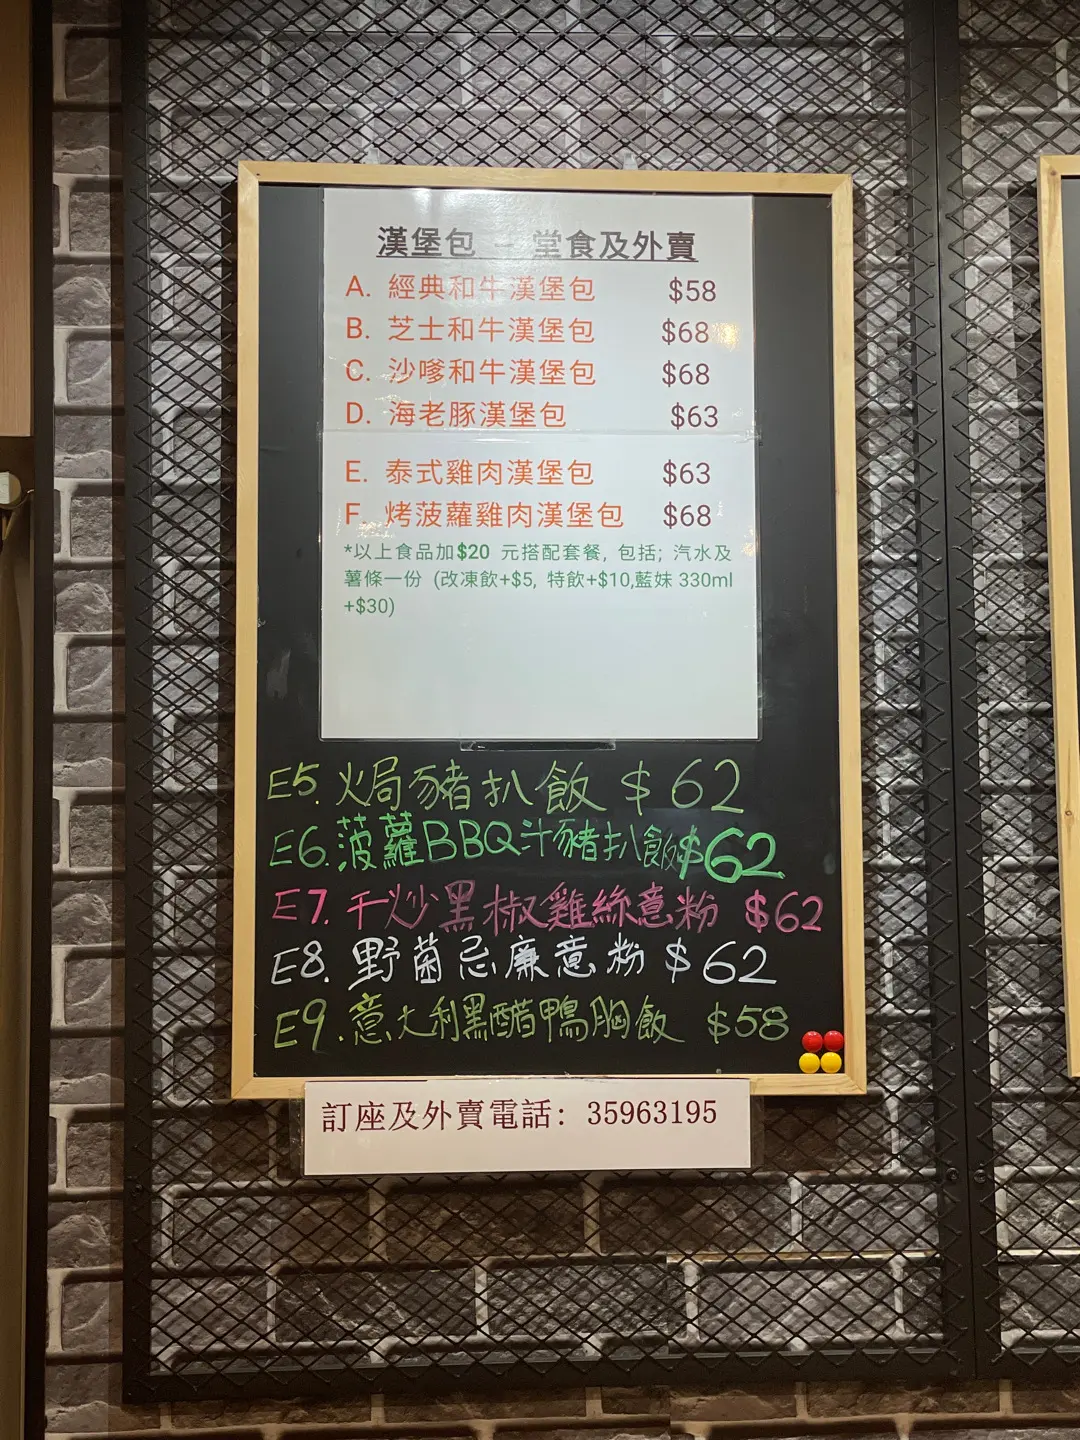 漢堡包 － 堂食及外賣
A. 經典和牛漢堡包 $58
B. 芝士和牛漢堡包 $68
C. 沙嗲和牛漢堡包 $68
D. 海老豚漢堡包 $63
E. 泰式雞肉漢堡包 $63
F. 烤菠蘿雞肉漢堡包 $68
*以上食品加$20 元搭配套餐, 包括; 汽水及
薯條一份 (改凍飲+$5, 特飲+$10,藍妹 330ml
+$30)
E5. 焗豬扒飯 $62
E6. 菠蘿BBQ汁豬扒飯$62
E7. 干炒黑椒雞絲意粉 $62
E8. 野菌忌廉意粉 $62
E9. 意大利黑醋鴨胸飯 $58
訂座及外賣電話: 35963195